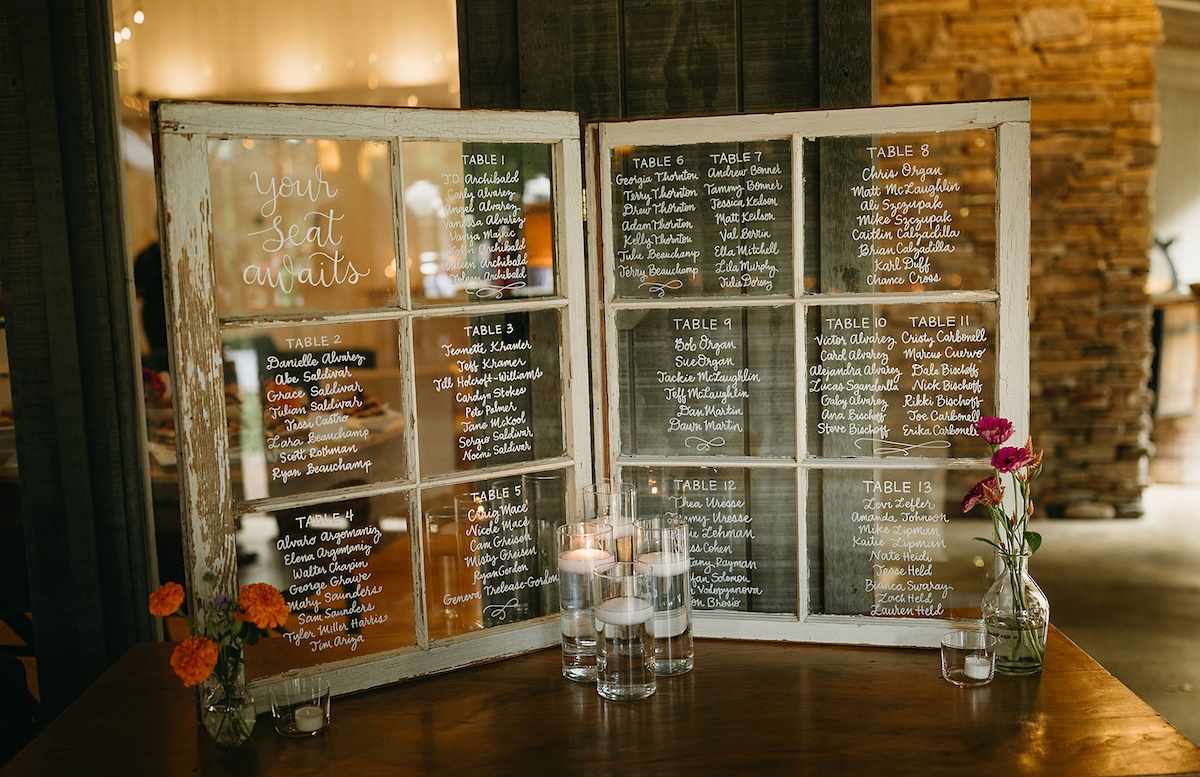 Your
Seat
awaits
TABLE 1
J.D. Archibald
Carly Alvarez
Angel Alvarez
Vanessa Alvarez
Vanja Majkic
John Archibald
Eileen Archibald
Archibald
TABLE 2
Danielle Alvarez
Abe Saldivar
Grace Saldivar
Julian Saldivar
Jessi Castro
Lara Beauchamp
Scott Rothman
Ryan Beauchamp
TABLE 3
Jeanette Kramer
Jeff Kramer
Jill Holcroft-Williams
Carolyn Stokes
Pete Palmer
Jane McKool
Sergio Saldivar
Noemi Saldivar
TABLE 4
Alvaro Argomaniz
Elena Argomaniz
Walter Chapin
George Grawe
Mary Saunders
Sam Saunders
Tyler Miller Harris
Tim Ariza
TABLE 5
Craig Mace
Nicole Mace
Cam Greisen
Misty Greisen
Ryan Gordon
Geneva Trelease-Gordon
TABLE 6
Georgia Thornton
Terry Thornton
Drew Thornton
Adam Thornton
Kelly Thornton
Julie Beauchamp
Jerry Beauchamp
TABLE 7
Andrew Bonner
Tammy Bonner
Jessica Keilson
Matt Keilson
Val Perrin
Ella Mitchell
Lila Murphy
Julie Dorsey
TABLE 8
Chris Organ
Matt McLaughlin
Ali Szczupak
Mike Szczupak
Caitlin Calzadilla
Brian Calzadilla
Karl Diff
Chance Cross
TABLE 9
Bob Organ
Sue Organ
Jackie McLaughlin
Jeff McLaughlin
Dan Martin
Dawn Martin
TABLE 10
Victor Alvarez
Carol Alvarez
Alejandra Alvarez
Lucas Sganderla
Gaby Alvarez
Ana Bischoff
Steve Bischoff
TABLE 11
Cristy Carbonell
Marcus Cuervo
Dale Bischoff
Nick Bischoff
Rikki Bischoff
Joe Carbonell
Erika Carbonell
TABLE 12
Thea Uresse
Uresse
Lehman
Cohen
Kayman
Solomon
Volopyanova
Brosio
TABLE 13
Levi Lefler
Amanda Johnson
Mike Zipman
Katie Lipman
Nate Heidi
Jesse Held
Bianca Swaray
Zach Held
Lauren Held